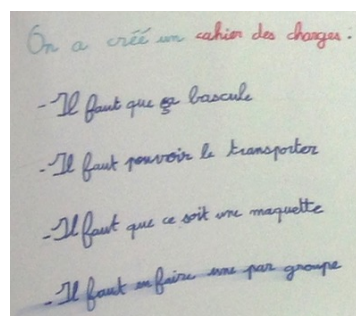 On a créé un cahier des charges :
- Il faut que ça bascule
- Il faut pouvoir le transporter
- Il faut que ce soit une maquette
- Il faut en faire une par groupe